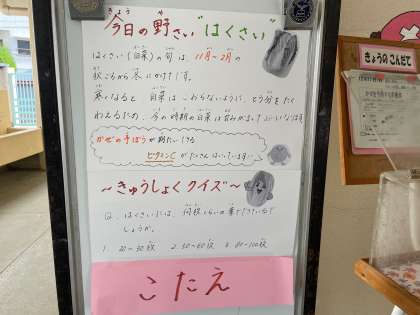 今日の野さい"はくさい"
きょう や
はくさい(白菜)の旬は、11月~2月の
秋ごろから冬にかけてです。
寒くなると 白菜は こおらないように、とう分をたく
わえるため、今の時期の白菜は甘みがまして
かぜの予ぼうが期たいできる
ビタミンCがたくさんはいっています
~きゅうしょくクイズ~
Q. はくさいには、何枚くらいの葉ができているで
しょうか。
1. 20~30枚 2. 50~60枚 3. 80~100枚
こたえ
きょうのこんだて